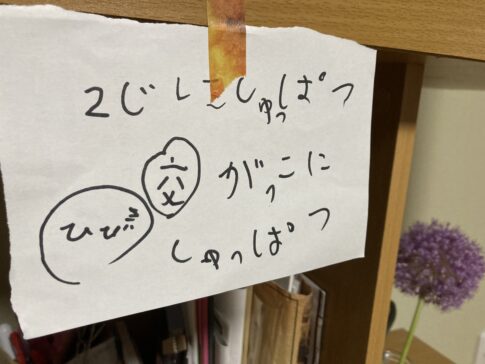 2じしごしゅっぱつ
がっこに
ひび
しゅっぱつ